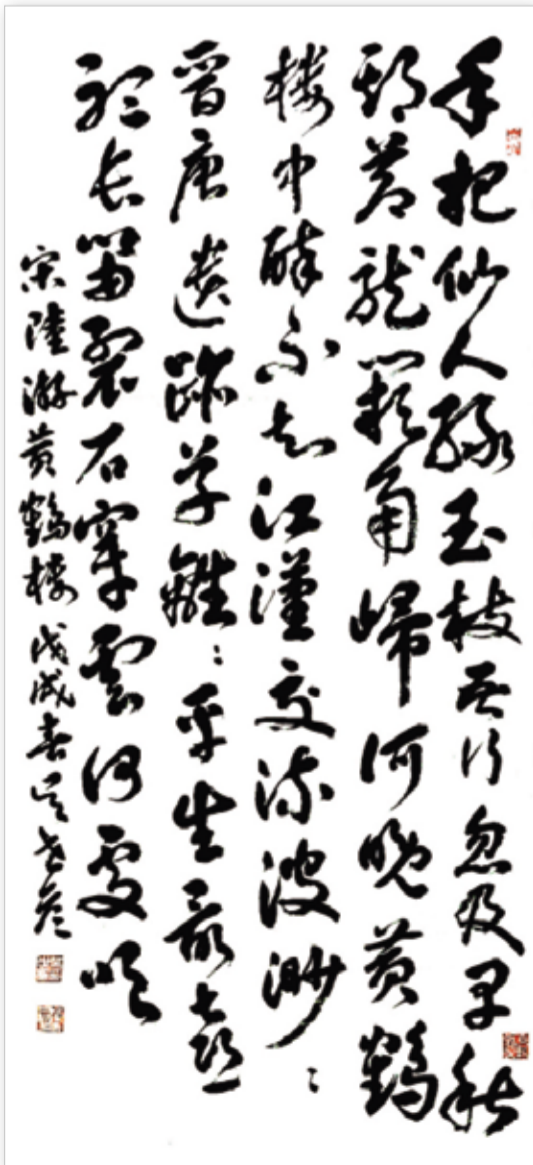 手把仙人綠玉枝吾行忽及早秋
期蒼龍闕角歸何晚黄鶴
楼中醉不知江漢交流波渺〻
晉唐遺跡草離〻平生最喜
聽長笛裂石穿雲何處吹
宋陸游黄鶴楼 戊戌春